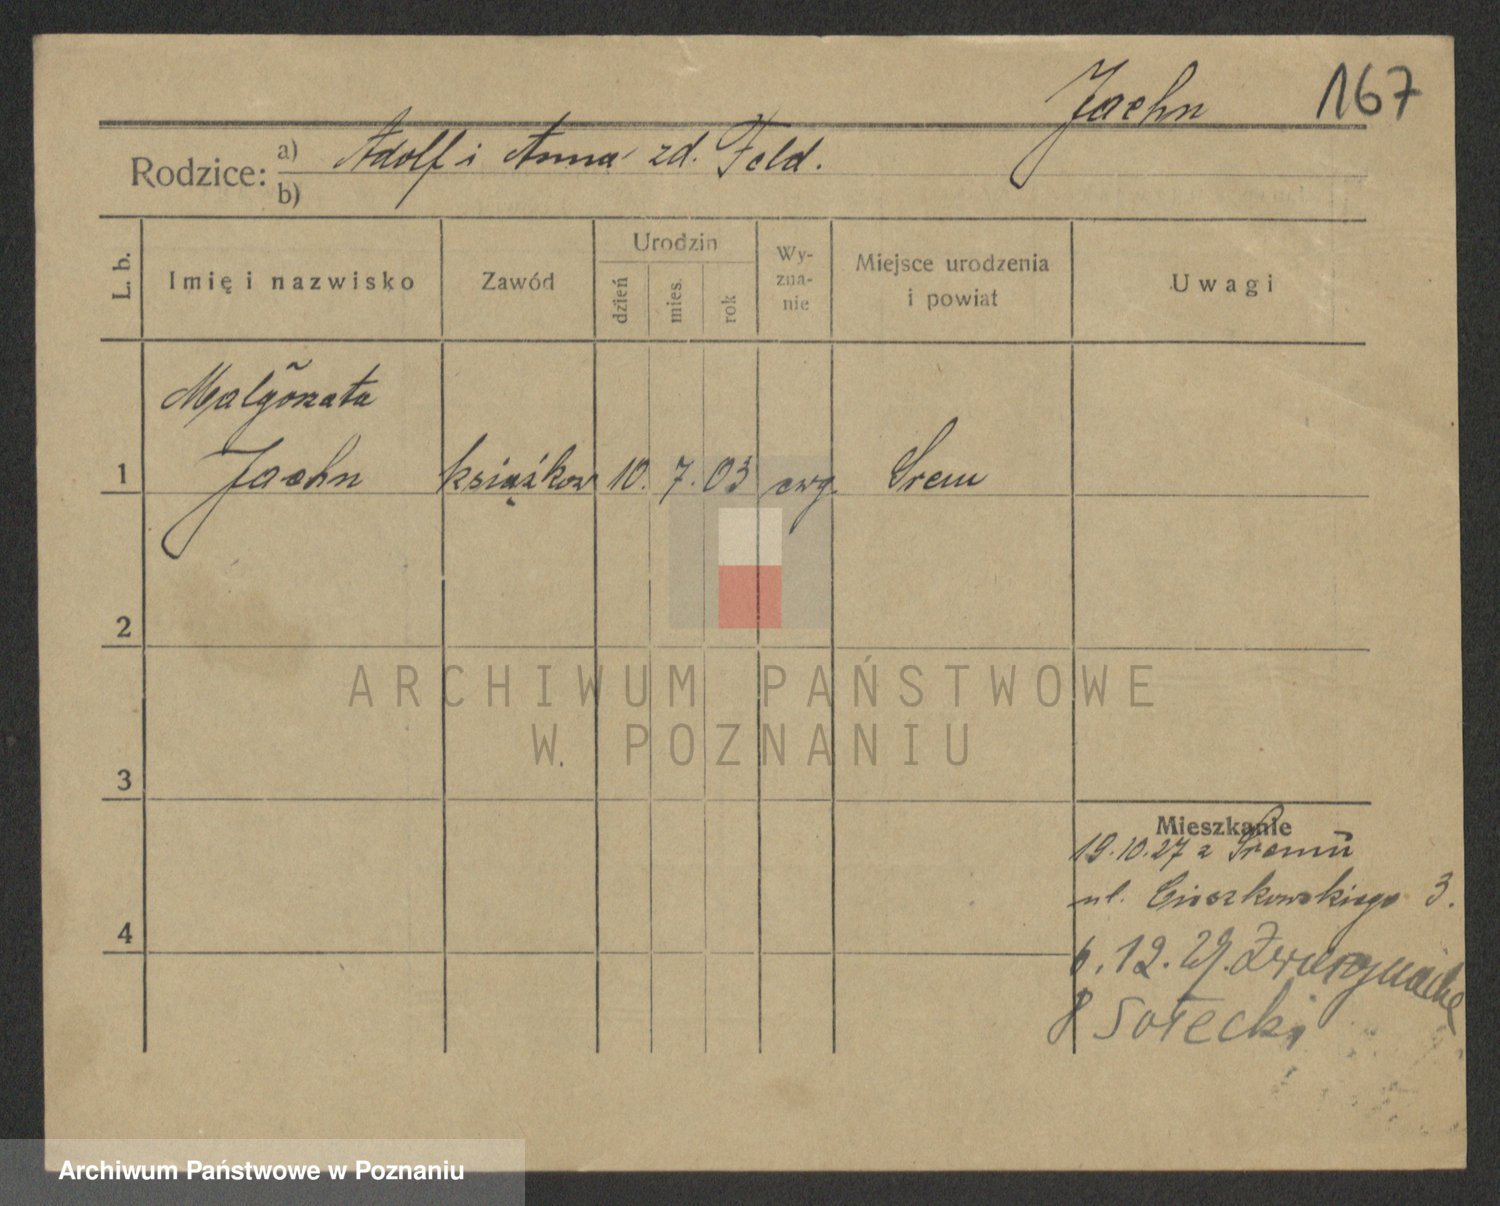 Jaehn 167
Rodzice: a) Adolf i Anna zd. Feld.
b)
L. b.
Imię i nazwisko
Zawód
Urodzin
dzień
mies.
rok
Wy-
zna-
nie
Miejsce urodzenia
i powiat
Uwagi
Małgorzata
1 Jaehn książkow 10. 7. 03 ewg. Śrem
2
ARCHIWUM PAŃSTWOWE
W POZNANIU
3
Mieszkanie
19.10.27 z Śremu
ul. Cieszkowskiego 3.
4
6.12.29. Zwierzyniecka
8 Sołecki
Archiwum Państwowe w Poznaniu